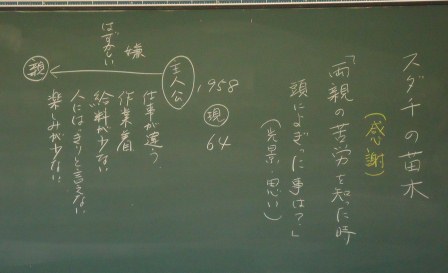 スダチの苗木
（感謝）
「両親の苦労を知った時
頭によぎった事は？」
（先景・思い）
1958
現
64
主人公
嫌
はずかしい
親
仕事が違う
作業着
給料が少ない
人にはっきりと言えない
楽しみが少ない